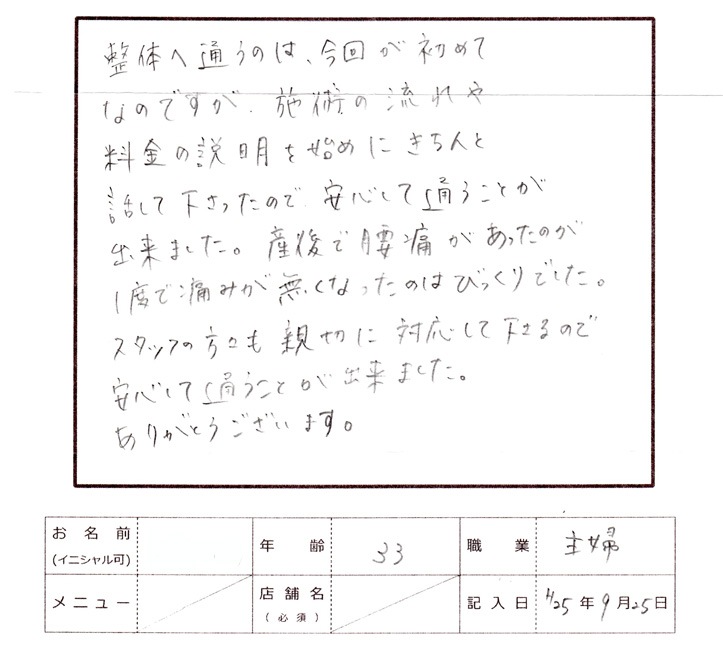 整体へ通うのは、今回が初めて
なのですが、施術の流れや
料金の説明を始めにきちんと
話して下さったので、安心して通うことが
出来ました。産後で腰痛があったのが
1度で痛みが無くなったのはびっくりでした。
スタッフの方々も親切に対応して下さるので
安心して通うことが出来ました。
ありがとうございます。
お名前
(イニシャル可)
年齢 33
職業 主婦
メニュー
店舗名
(必須)
記入日 H25年9月25日